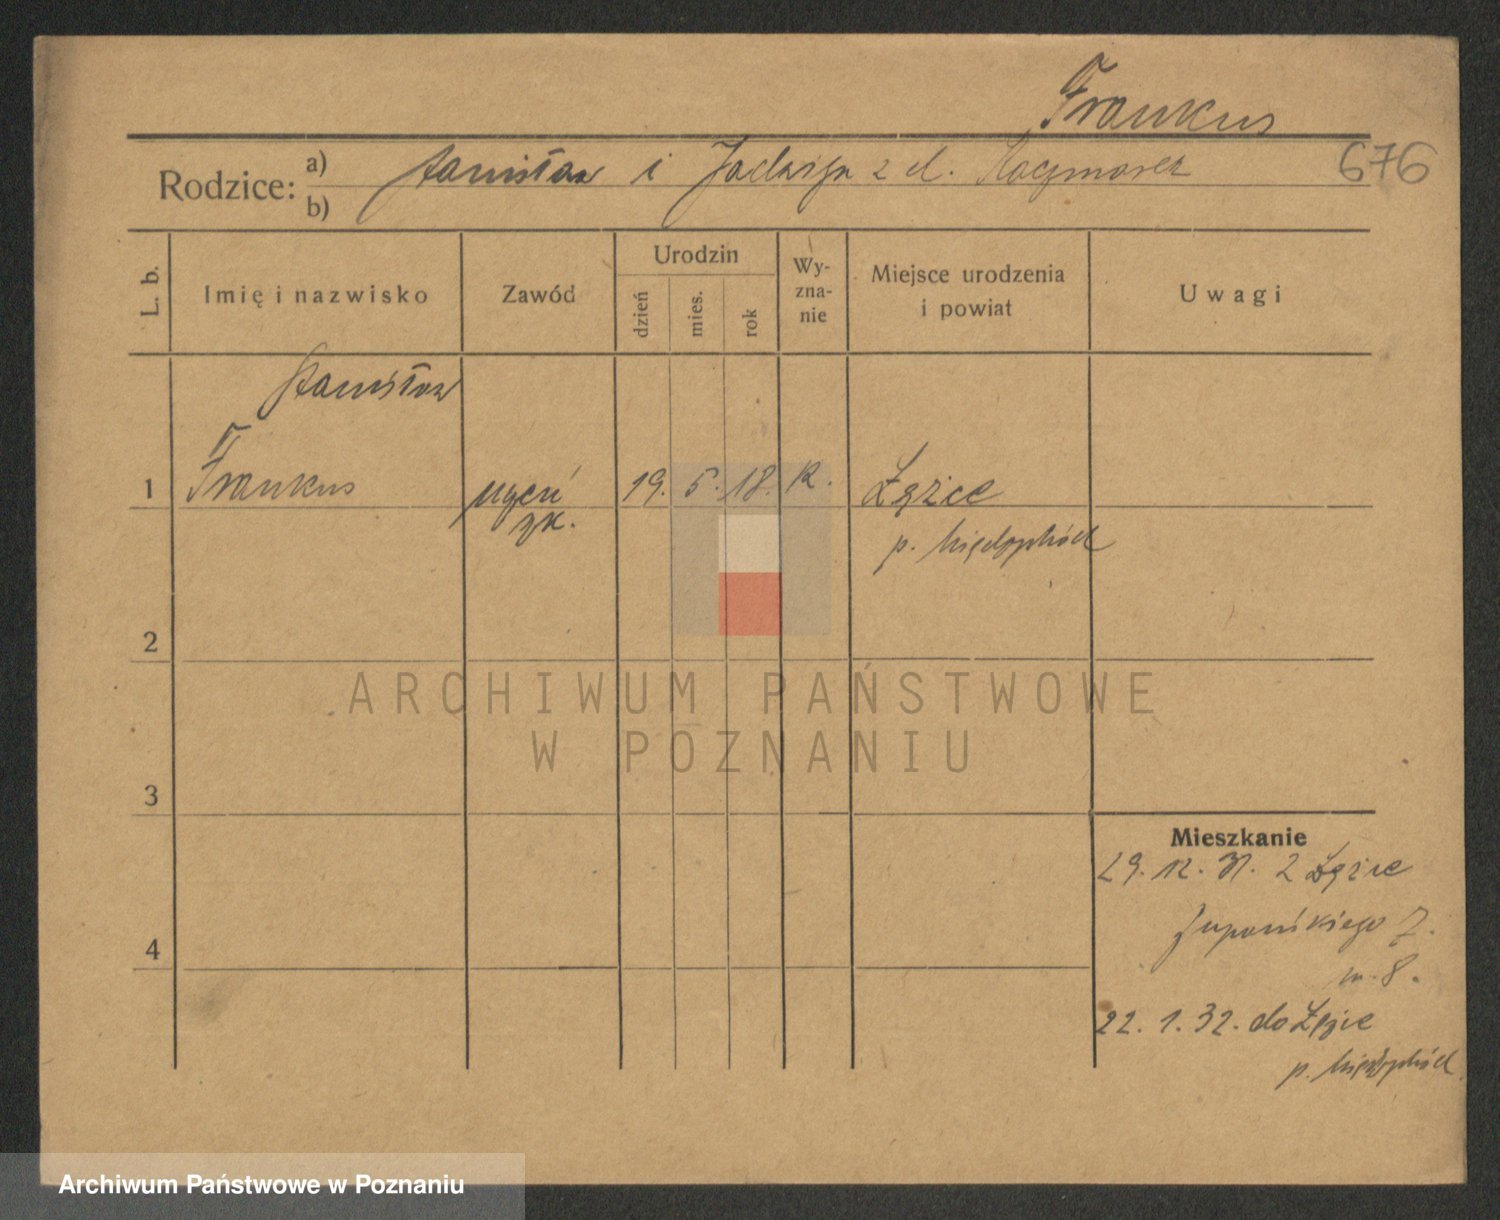 Frankus
676
Rodzice: a) b) Stanisław i Jadwiga z d. Kaczmarek
L. b.
Imię i nazwisko
Zawód
Urodzin
dzień
mies.
rok
Wy-
zna-
nie
Miejsce urodzenia
i powiat
Uwagi
Stanisław
1 Frankus uczeń 19. 5. 18. k.
rk.
p. Międzychód
2
ARCHIWUM PAŃSTWOWE
W POZNANIU
3
Mieszkanie
29. 12. 31. z
7.
4
m. 8.
22. 1. 32. do
p. Międzychód
Archiwum Państwowe w Poznaniu